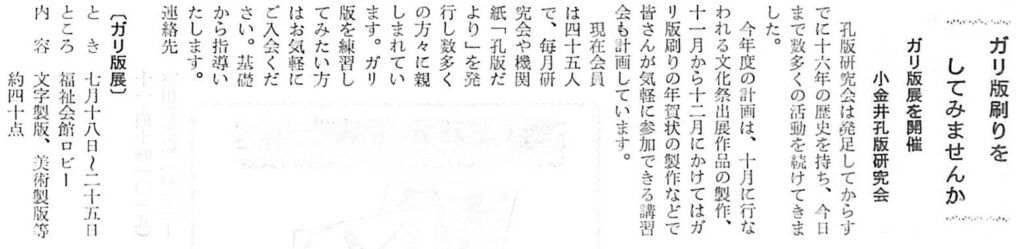 ガリ版刷りを
してみませんか
ガリ版展を開催
小金井孔版研究会
孔版研究会は発足してからす
でに十六年の歴史を持ち、今日
まで数多くの活動を続けてきま
した。
今年度の計画は、十月に行な
われる文化祭出展作品の製作、
十一月から十二月にかけてはガ
リ版刷りの年賀状の製作などで
皆さんが気軽に参加できる講習
会も計画しています。
現在会員
は四十五人
で、毎月研
究会や機関
紙「孔版だ
より」を発
行し数多く
の方々に親
しまれてい
ます。ガリ
版を練習し
てみたい方
はお気軽に
ご入会くだ
さい。基礎
から指導い
たします。
連絡先
〔ガリ版展〕
とき 七月十八日～二十五日
ところ 福祉会館ロビー
内容 文字製版、美術製版等
約四十点